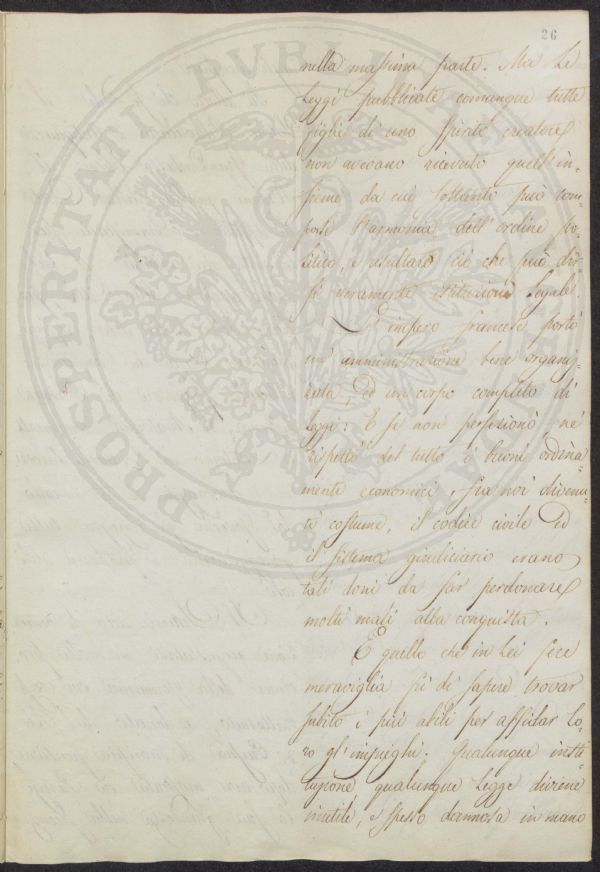 26
PROSPERITATI PVBLICAE
nella massima parte. Ma le
leggi pubblicate comunque tutte
figlie di uno spirito creatore
non avevano ricevuto quell'in-
sieme da cui soltanto può com-
porsi l'armonia dell'ordine po-
litico, e risultare ciò che può dir-
si veramente istituzioni legali.
L'impero francese portò
un'amministrazione bene organiz-
zata, ed un corpo completo di
leggi: E se non perfezionò nè
rispettò del tutto i buoni ordina-
menti economici, fra noi divenu-
ti costume, il codice civile ed
il sistema giudiciario erano
tali doni da far perdonare
molti mali alla conquista.
E quello che in lei fece
meraviglia fù di sapere trovar
subito i più abili per affidar lo-
ro gl'impieghi. Qualunque insti-
tuzione, qualunque legge diviene
inutile, e spesso dannosa in mano